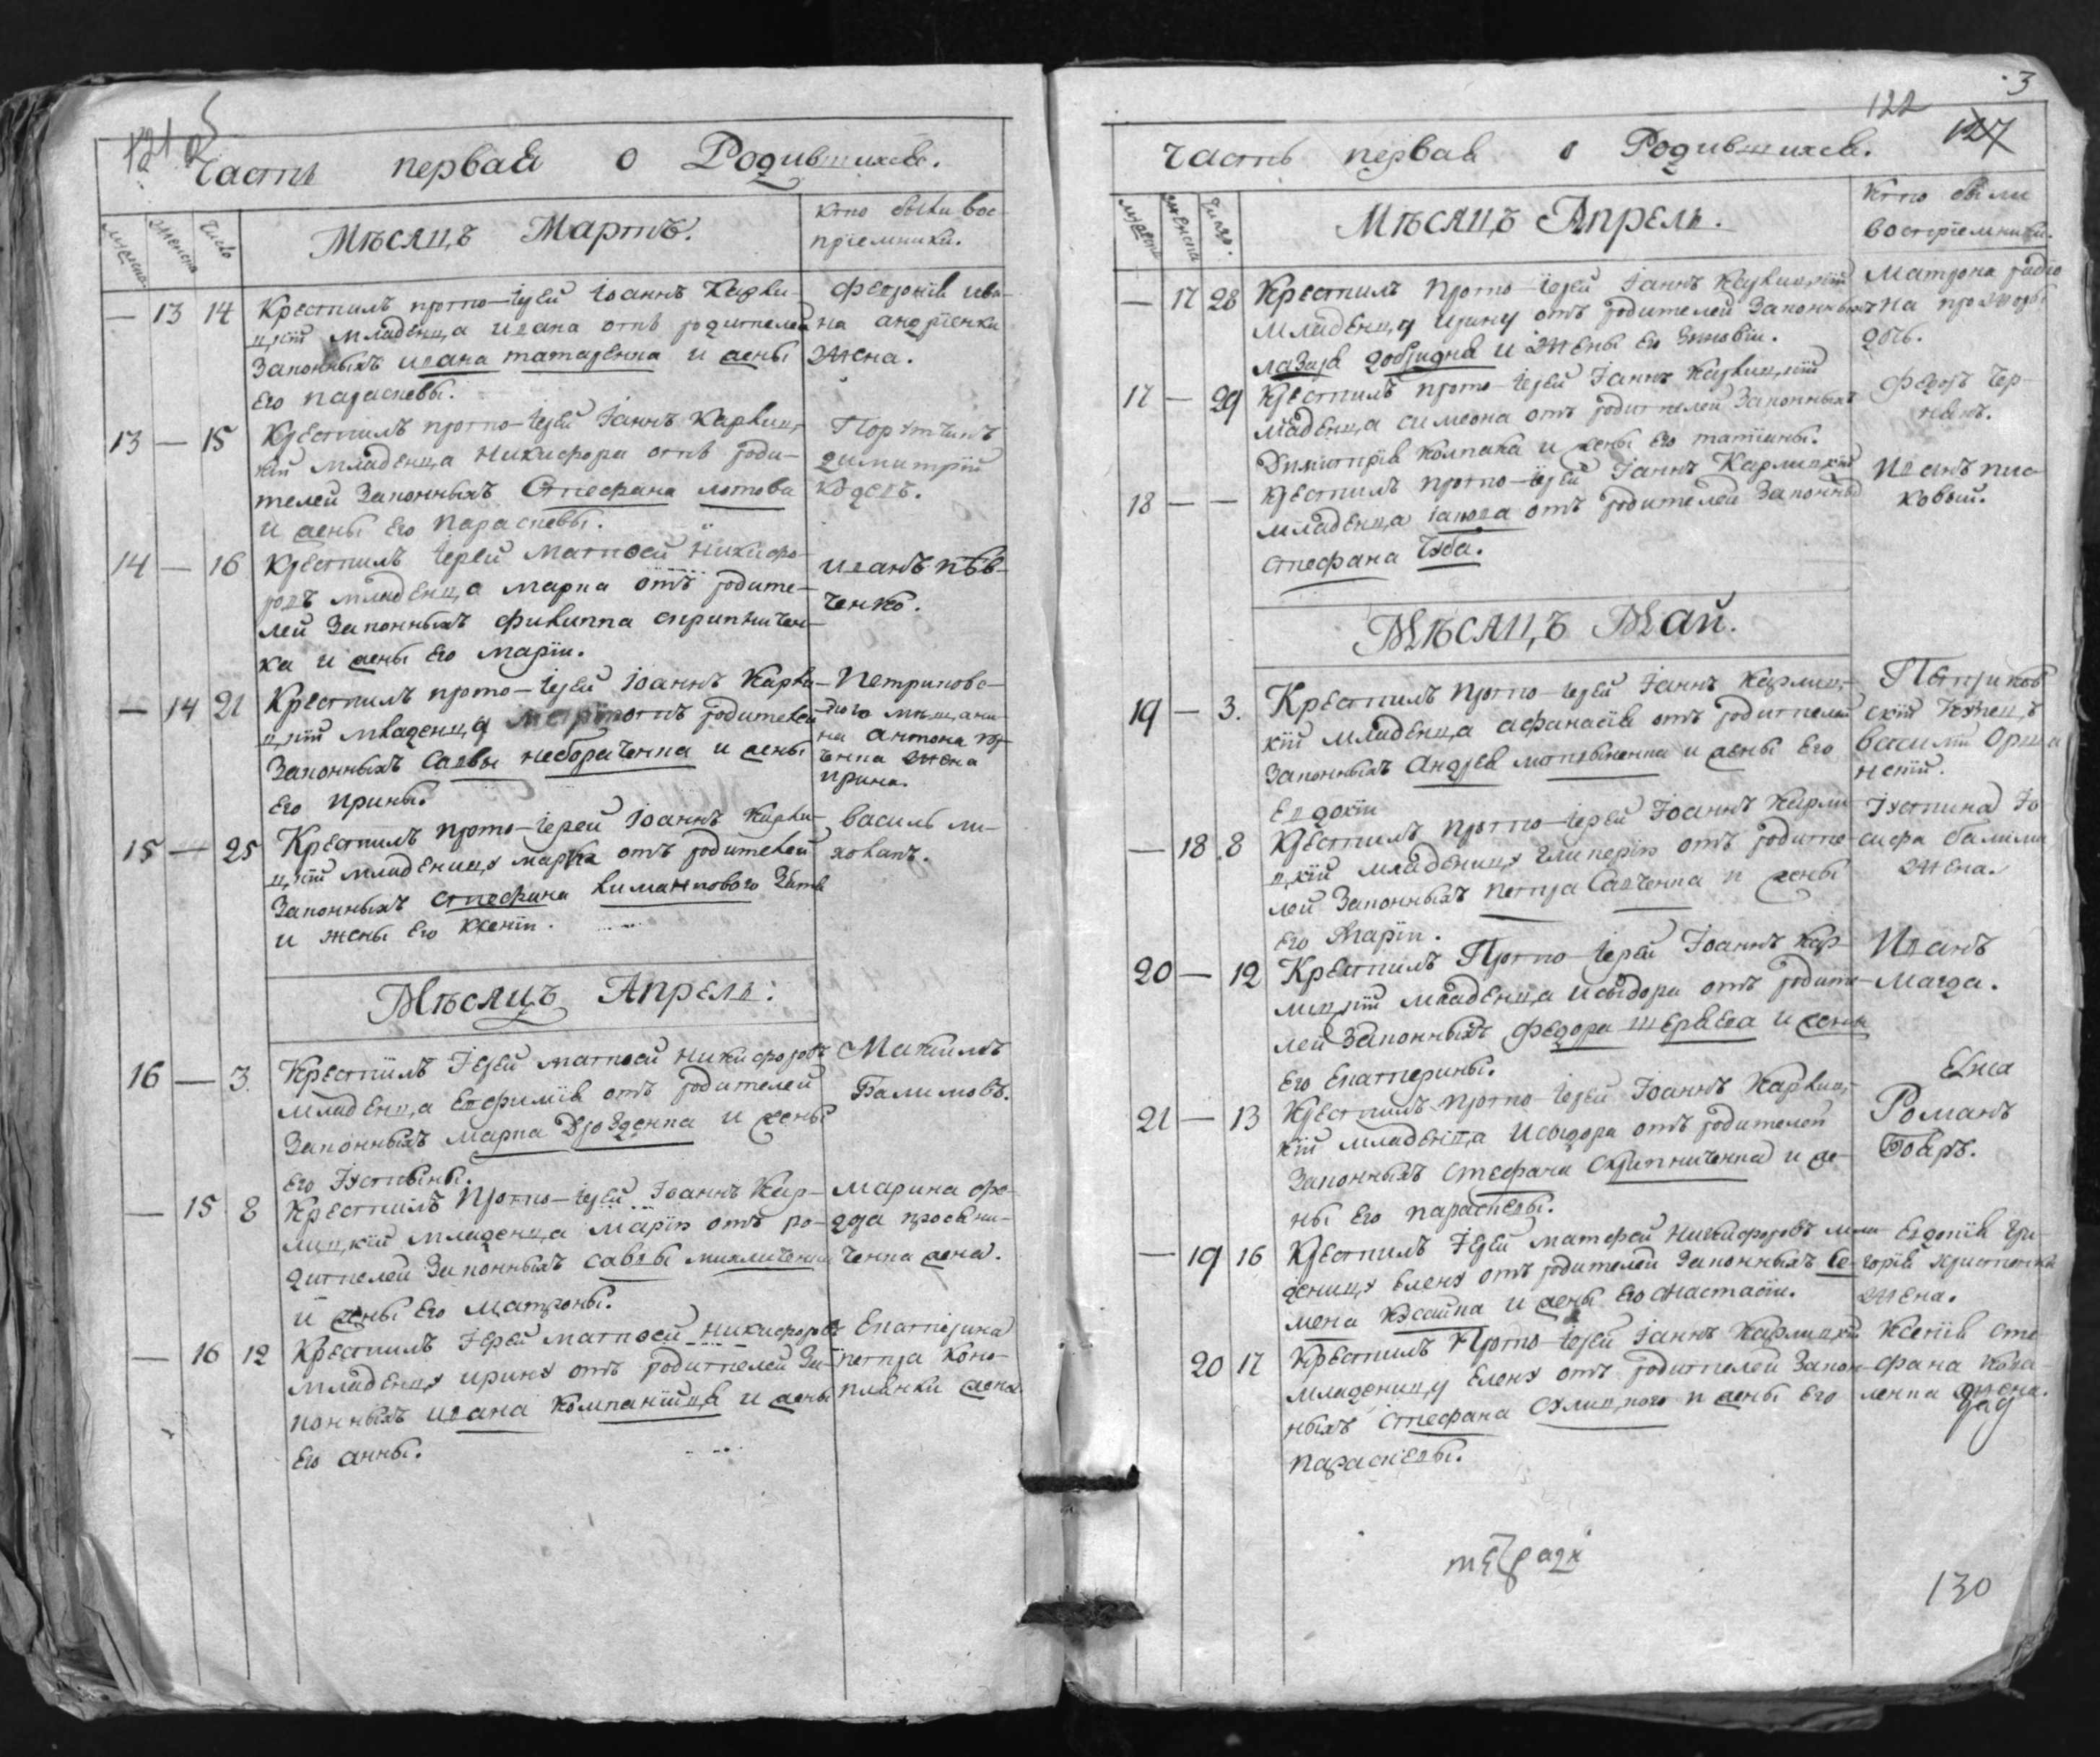 121
Часть первая о Родившихся.
мужеска
женска
число
Мѣсяцъ Мартъ.
кто были вос-
пріемники.
— 13 14 Крестилъ прото-іерей Іоаннъ Карли-
цкій младенца ивана отъ родителей
Законныхъ ивана татаренка и жены
Его параскевы.
Ѳедосія ива-
на андріенка
жена.
13 — 15 Крестилъ прото-іерей Іаннъ Карлиц-
кій младенца Никифора отъ роди-
телей Законныхъ Стефана лотова
и жены Его Параскевы.
Порутчикъ
димитрій
14 — 16 Крестилъ іерей Матѳей Никифо-
ровъ младенца марка отъ родите-
лей Законныхъ филиппа скрипнчен-
ка и жены Его маріи.
иванъ пѣв-
ченко.
— 14 21 Крестилъ прото-іерей Іоаннъ Карли-
цкій младенцу отъ родителей
Законныхъ Саввы неборатченка и жены
Его Ирины.
Петриковс-
кого мещани-
на антона
ченка жена
ирина.
15 — 25 Крестилъ прото-іерей Іоаннъ Карли-
цкій младеницу марка отъ родителей
Законныхъ стефана лимантового Зятя
и жены Его Ксеніи.
василь ли-
хованъ.
Мѣсяцъ Апрель:
16 — 3. Крестилъ Іерей матѳей никифоровъ
младенца Евфимія отъ родителей
Законныхъ марка Дрозденка и жены
Его Іустины.
Макимъ
Балимовъ.
— 15 8 Крестилъ Прото-іерей Іоаннъ Кар-
лицкій младенца Марію отъ ро-
дителей Законныхъ саввы михличенка
и жены Его матроны.
марина фе-
дора просяни-
ченка жена.
— 16 12 Крестилъ Іерей матѳей никифоровъ
младенцу ирину отъ родителей За-
конныхъ ивана Компанійца и жены
Его анны.
Екатерина
петра Коно-
плянки жена
3
122
127
Часть первая о Родившихся.
мужеска
женска
число.
Мѣсяцъ Апрель.
Кто были
воспріемники.
— 17 28 Крестилъ прото-іерей Іаннъ Карлицкій
младенцу ирину отъ родителей Законныхъ
лазаря добридня и жены Его Зиновіи.
Матрона
дчь.
17 — 29 Крестилъ прото-іерей Іаннъ Карлицкій
младенца симеона отъ родителей Законныхъ
Димитрія колпака и жены Его татіаны.
Федоръ Чер-
18 — — Крестилъ прото-іерей Іаннъ Карлицкій
младенца іакова отъ родителей Законны
стефана Чуба.
Иванъ пис-
ковый.
Мѣсяцъ Май.
19 — 3. Крестилъ прото-іерей Іаннъ Карлиц-
кій младенца афанасія отъ родителей
Законныхъ Андрея мотвыенка и жены Его
Евдокіи
Петриков
скій Купецъ
василій
— 18 8 Крестилъ прото-іерей Іоаннъ Карли
цкій младеницу Гликерію отъ родите-
лей Законныхъ петра Савченка и жены
Его Маріи.
Іустина Іо
сифа балима
жена.
20 — 12 Крестилъ Прото-іерей Іоаннъ Кар-
лицкій младенца Исидора отъ родите-
лей Законныхъ федора шеравва и жены
Его Екатерины.
Иванъ
Магда.
21 — 13 Крестилъ прото-іерей Іоаннъ Карлиц-
кій младенца Исидора отъ родителей
Законныхъ стефана скрипниченка и же-
ны Его параскевы.
Романъ
— 19 16 Крестилъ Іерей матфей Никифоровъ мла
деницу Елену отъ родителей Законныхъ се-
мена и жены Его анастасіи.
Евдокія гри
горія христенка
жена.
20 17 Крестилъ Прото-іерей Іаннъ Карлицкій
младеницу Елену отъ родителей Закон-
ныхъ стефана и жены Его
параскевы.
Ксенія сте
фана кова
ленка жена.
130